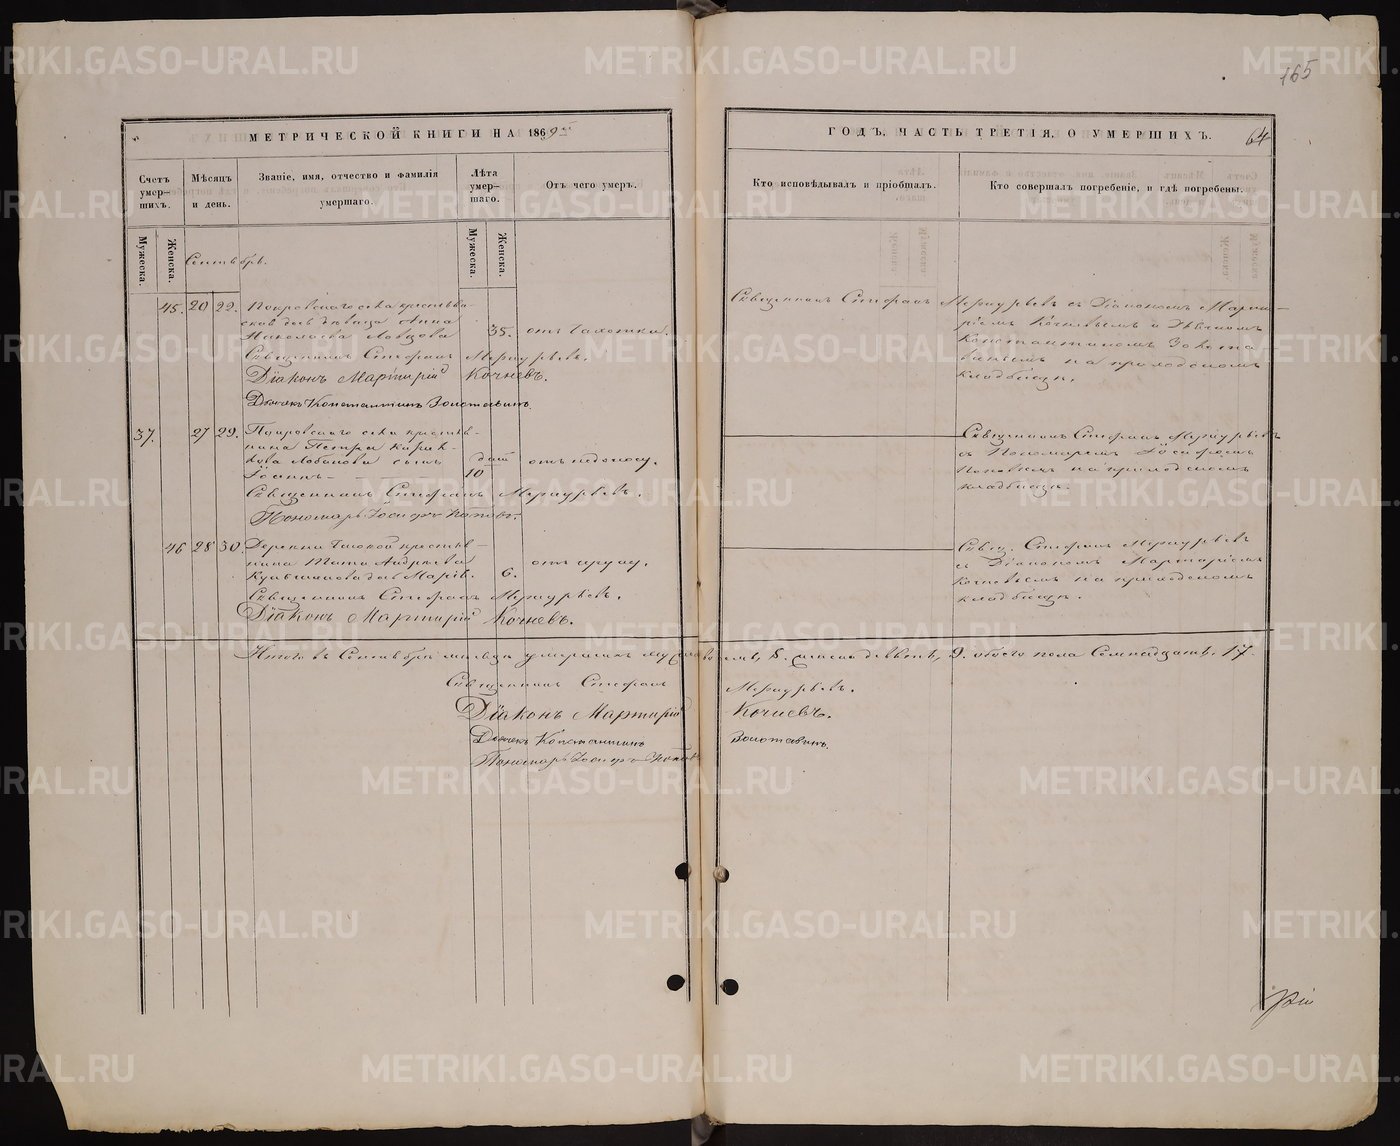 165
МЕТРИЧЕСКОЙ КНИГИ НА 1869
ГОДЪ, ЧАСТЬ ТРЕТІЯ, О УМЕРШИХЪ.
64
Счетъ умер-шихъ.
Мѣсяцъ и день.
Званіе, имя, отчество и фамилія умершаго.
Лѣта умер-шаго.
Отъ чего умеръ.
Кто исповѣдывалъ и пріобщалъ.
Кто совершалъ погребеніе, и гдѣ погребены.
Мужеска.
Женска.
Мужеска.
Женска.
Сентябрь.
45. 20 22. Покровскаго села крестьян-
ская дѣвица Анна
35. отъ чахотки.
Священникъ Стефанъ Меркурьевъ.
Діаконъ Мартирій Кочневъ.
Дьячекъ Константинъ Золотавинъ.
Священникъ Стефанъ Меркурьевъ съ Діакономъ Марти-
ріемъ Кочневымъ и Дьячкомъ
Константиномъ Золота
винымъ на приходскомъ
кладбищѣ.
37. 27 29. Покровскаго села крестья-
нина Петра
сынъ
Іоаннъ
дней
10
отъ недоносу.
Священникъ Стефанъ Меркурьевъ.
Пономарь Іосифъ Поповъ.
Священникъ Стефанъ Меркурьевъ
съ Пономаремъ Іосифомъ
Поповымъ на приходскомъ
кладбищѣ.
46 28 30. Деревни крестья-
нина Андреева
Марія.
6.
отъ
Священникъ Стефанъ Меркурьевъ.
Діаконъ Мартирій Кочневъ.
Свящ. Стефанъ Меркурьевъ
съ Діакономъ Мартиріемъ
Кочневымъ на приходскомъ
кладбищѣ.
Итого въ Сентябрѣ мѣсяцѣ умершихъ 8. женска девять, 9. обоего пола Семнадцать. 17.
Священникъ Стефанъ Меркурьевъ.
Діаконъ Мартирій Кочневъ.
Дьячекъ Константинъ Золотавинъ.
Пономарь Іосифъ Поповъ
METRIKI.GASO-URAL.RU